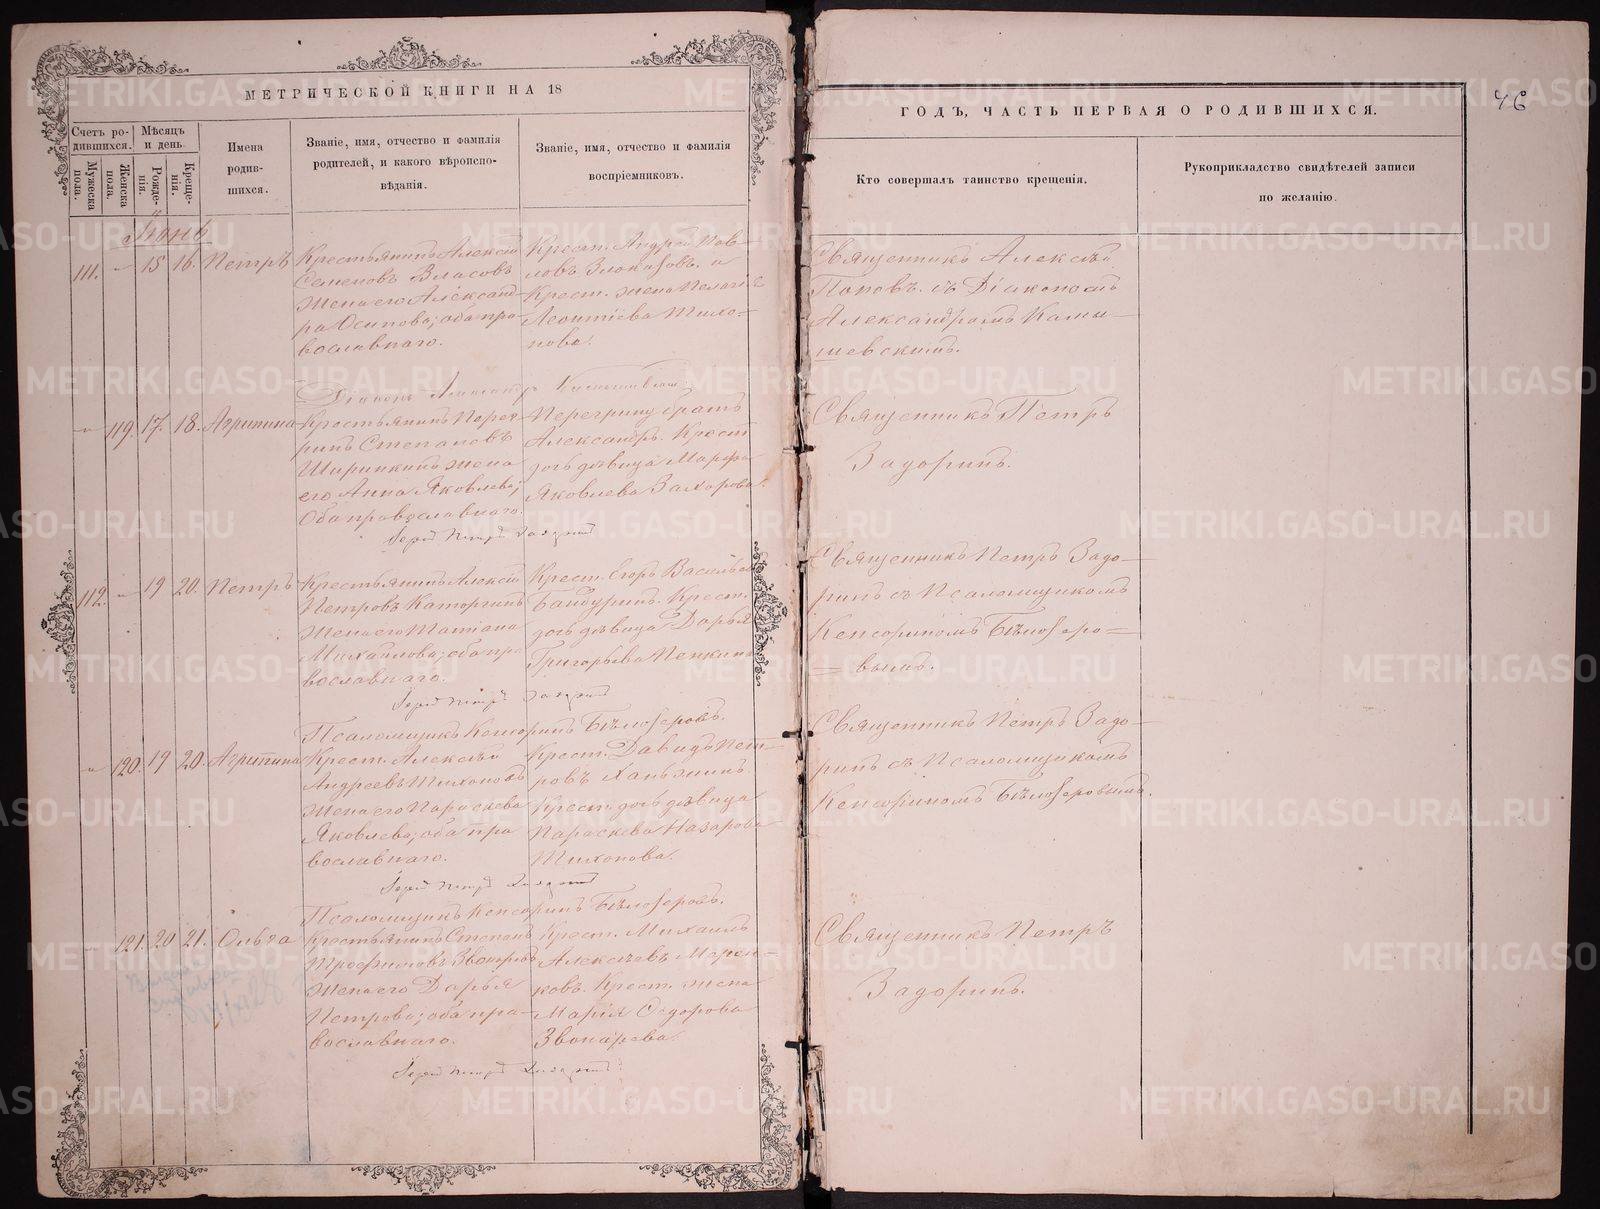 МЕТРИЧЕСКОЙ КНИГИ НА 18
Счетъ родившихся.
Мужеска пола.
Женска пола.
Мѣсяцъ и день
Рожденія.
Крещенія.
Имена родившихся.
Званіе, имя, отчество и фамилія
родителей, и какого вѣроиспо-
вѣданія.
Званіе, имя, отчество и фамилія
воспріемниковъ.
Іюнь
111. 15 16. Петръ
Крестьянинъ Алексій
Семеновъ Власовъ
жена его Александ-
ра Осипова; оба пра-
вославнаго.
Крест. Андрей Пав-
ловъ Злоказовъ. и
Крест. жена Пелагія
Леонтіева Тихо=
нова.
Діаконъ Александръ
119. 17. 18. Агрипина
Крестьянинъ
Степановъ
Ширинкинъ жена
его Анна Яковлева;
Оба православнаго.
братъ
Александръ. Крест
дочь дѣвица Марфа
Яковлева Захарова.
Іерей Петръ Задоринъ
112. 19 20. Петръ
Крестьянинъ Алексій
Петровъ Каторгинъ
жена его Татіана
Михайлова; оба пра
вославнаго.
Крест. Егоръ Васильевъ
Бандуринъ. Крест.
дочь дѣвица Дарья
Григорьева Пенкина
Іерей Петръ Задоринъ
Псаломщикъ Кенсоринъ Бѣлозеровъ.
120. 19 20. Агрипина
Крест. Алексѣй
Андреевъ Тихоновъ
жена его Параскева
Яковлева; оба пра
вославнаго.
Крест. Давидъ Пет-
ровъ Ханжинъ
Крест. дочь дѣвица
Параскева Назарова
Тихонова.
Іерей Петръ Задоринъ
Псаломщикъ Кенсоринъ Бѣлозеровъ.
121. 20 21. Ольга
Крестьянинъ Степанъ
Трофимовъ Звонаревъ
жена его Дарья
Петрова; оба пра-
вославнаго.
Крест. Михаилъ
Алексѣевъ
ковъ. Крест. жена
Марія Ѳедорова
Звонарева.
Іерей Петръ Задоринъ
ГОДЪ, ЧАСТЬ ПЕРВАЯ О РОДИВШИХСЯ.
46
Кто совершалъ таинство крещенія.
Рукоприкладство свидѣтелей записи
по желанію.
Священникъ Алексѣй
Поповъ. съ Діакономъ
Александромъ Камы-
шевскимъ.
Священникъ Петръ
Задоринъ.
Священникъ Петръ Задо-
ринъ съ Псаломщикомъ
Кенсориномъ Бѣлозеро=
=вымъ.
Священникъ Петръ Задо-
ринъ съ Псаломщикомъ
Кенсориномъ Бѣлозеровымъ.
Священникъ Петръ
Задоринъ.
METRIKI.GASO-URAL.RU